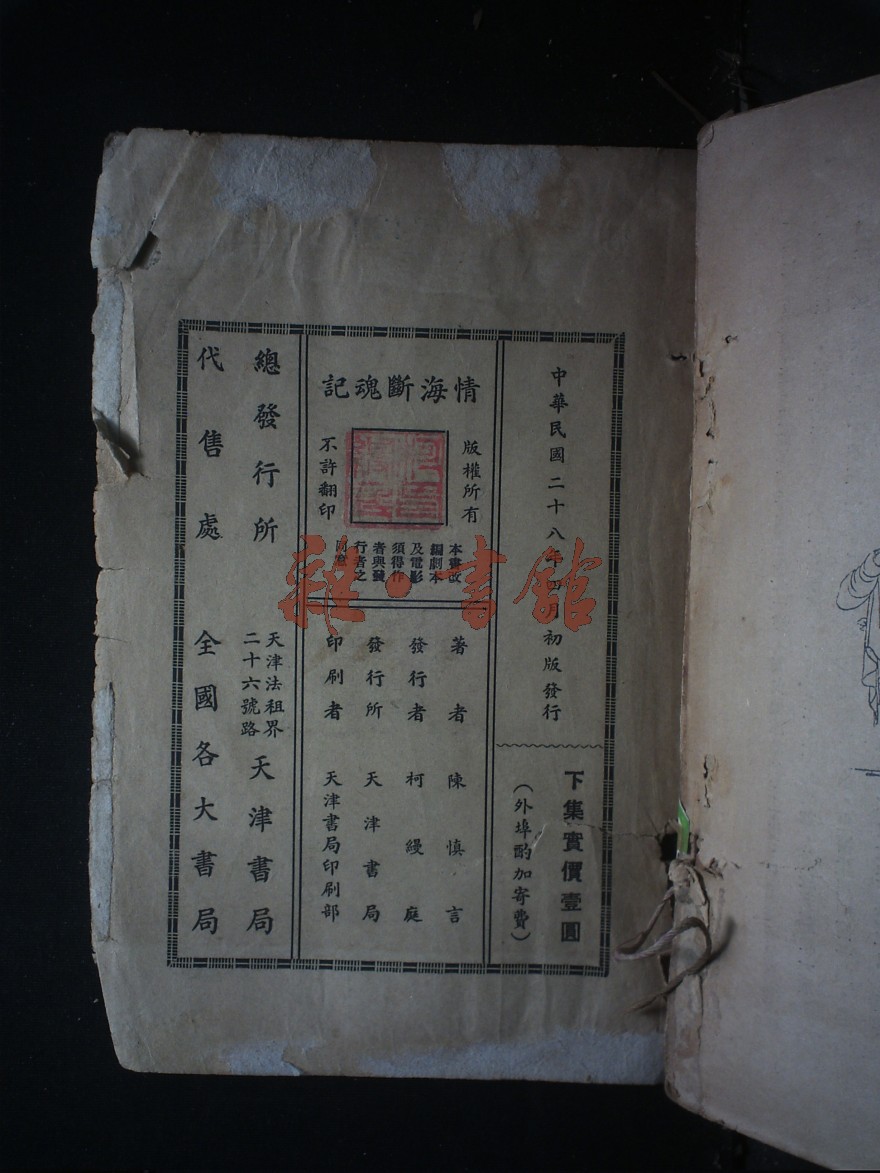 中華民國二十八年四月初版發行
下集實價壹圓
（外埠酌加寄費）
情海斷魂記
版權所有
不許翻印
本書改
編劇本
及電影
須得作
者與發
行者之
同意
著者 陳慎言
發行者 柯縵庭
發行所 天津書局
印刷者 天津書局印刷部
總發行所 天津法租界二十六號路 天津書局
代售處 全國各大書局
雜·書館